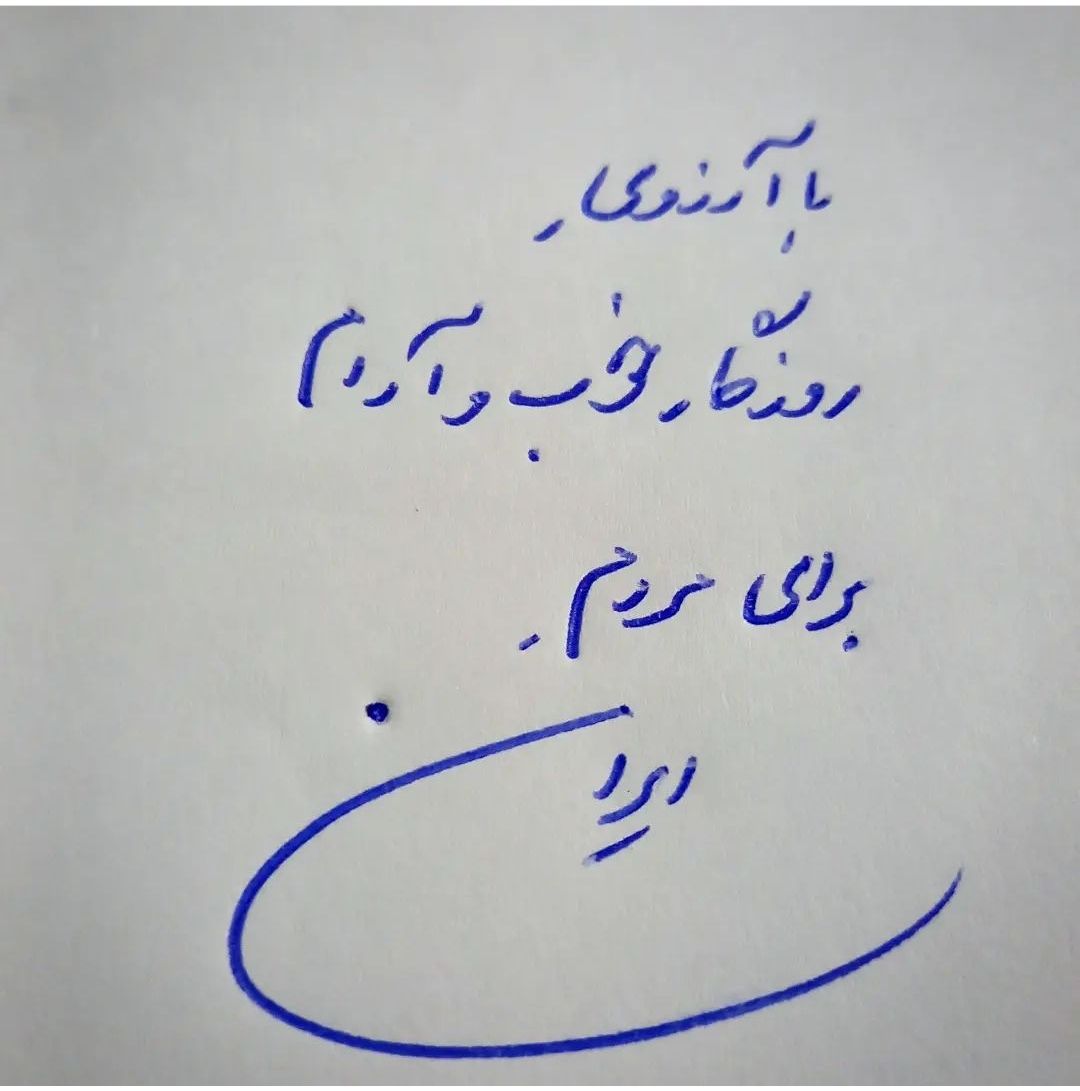 با آرزویِ
روزگار خوب و آرام
برای مردمِ
ایران